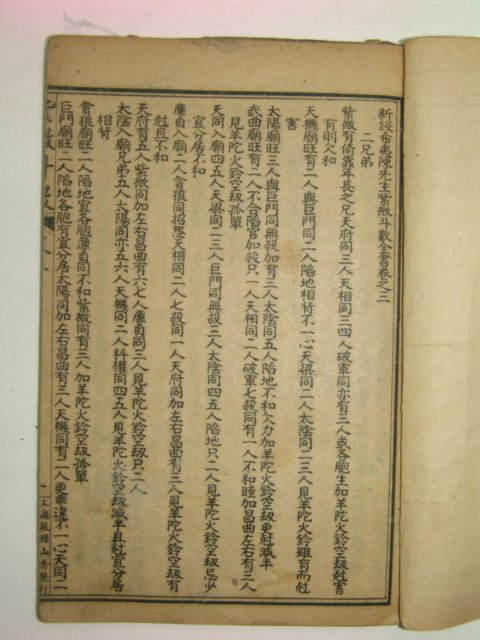 新鋟希夷陳先生紫微斗數全書卷之三
二兄弟
紫微有倚靠年長之兄天府同三人天相同三四人破軍同亦有三人或各胞生加羊陀火鈴空劫尅害
有則欠和
天機廟旺有二人與巨門同二人陷地相背不一心天梁同二人太陰同二三人見羊陀火鈴雖有而尅
害
太陽廟旺三人與巨門同無殺加有三人太陰同五人陷地不和欠力加羊陀火鈴空劫更尅減半
武曲廟旺有二人不合陷宮加殺只一人天相同二人破軍七殺同有一人不和睦加昌曲左右有三人
見羊陀火鈴空劫孤單
天同入廟四五人天梁同二三人巨門同無殺三人太陰同四五人陷地只二人見羊陀火鈴空劫忌少
宜分居不和
廉貞入廟二人貪狼同招怨天相同二人七殺同一人天府同加左右昌曲有三人見羊陀火鈴空劫有
尅且不和
天府有五人紫微同加左右昌曲有六七人廉貞同三人見羊陀火鈴空劫只二人
太陰入廟兄弟五人太陽同亦五六人天機同二人科權同四五人見羊陀火鈴空劫減半且尅宜分居
相背
貪狼廟旺二人陷地宜各胞廉貞同不和紫微同有三人加羊陀火鈴空劫孤單
巨門廟旺二人陷地各胞有宜分居太陽同加左右昌曲有三人天機同有二人更乖違不一心天同二
上海校經山房發行